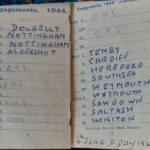 Engagements, 1944.
DOLGELLY
NOTTINGHAM
NOTTINGHAM
ALDERSHOT
Engagements, 1944.
TENBY
CARDIFF
HEREFORD
SOUTHSEA
WEYMOUTH
WEYMOUTH
SANDOWN
SALTASH
HONITON
6 JUNE D DAY 1944